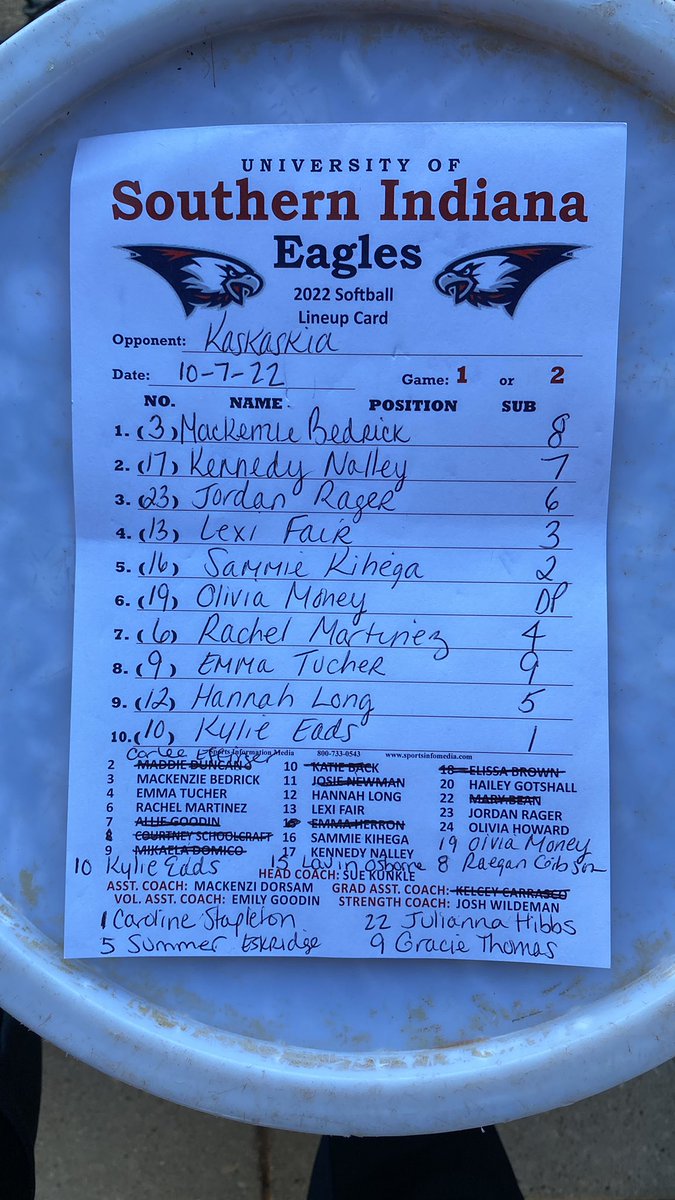 UNIVERSITY OF
Southern Indiana
Eagles
2022 Softball
Lineup Card
Opponent: Kaskaskia
Date: 10-7-22 Game: 1 or 2
NO. NAME POSITION SUB
1. (3) Mackenzie Bedrick 8
2. (17) Kennedy Nalley 7
3. (23) Jordan Rager 6
4. (13) Lexi Fair 3
5. (16) Sammie Kihega 2
6. (19) Olivia Money DP
7. (6) Rachel Martinez 4
8. (9) Emma Tucher 9
9. (12) Hannah Long 5
10. (10) Kylie Eads 1
Sports Information Media 800-733-0543 www.sportsinfomedia.com
Carlee
2 MADDIE DUNCAN 10 KATIE BACK 18 ELISSA BROWN
3 MACKENZIE BEDRICK 11 JOSIE NEWMAN 20 HAILEY GOTSHALL
4 EMMA TUCHER 12 HANNAH LONG 22 MARY BEAN
6 RACHEL MARTINEZ 13 LEXI FAIR 23 JORDAN RAGER
7 ALLIE GOODIN 15 EMMA HERRON 24 OLIVIA HOWARD
8 COURTNEY SCHOOLCRAFT 16 SAMMIE KIHEGA 19 Olivia Money
9 MIKAELA DOMICO 17 KENNEDY NALLEY 8 Raegan Gibson
10 Kylie Eads 15 Osborne
HEAD COACH: SUE KUNKLE
ASST. COACH: MACKENZI DORSAM GRAD ASST. COACH: KELCEY CARRASCO
VOL. ASST COACH: EMILY GOODIN STRENGTH COACH: JOSH WILDEMAN
1 Caroline Stapleton 22 Julianna Hibbs
5 Summer Eskridge 9 Gracie Thomas